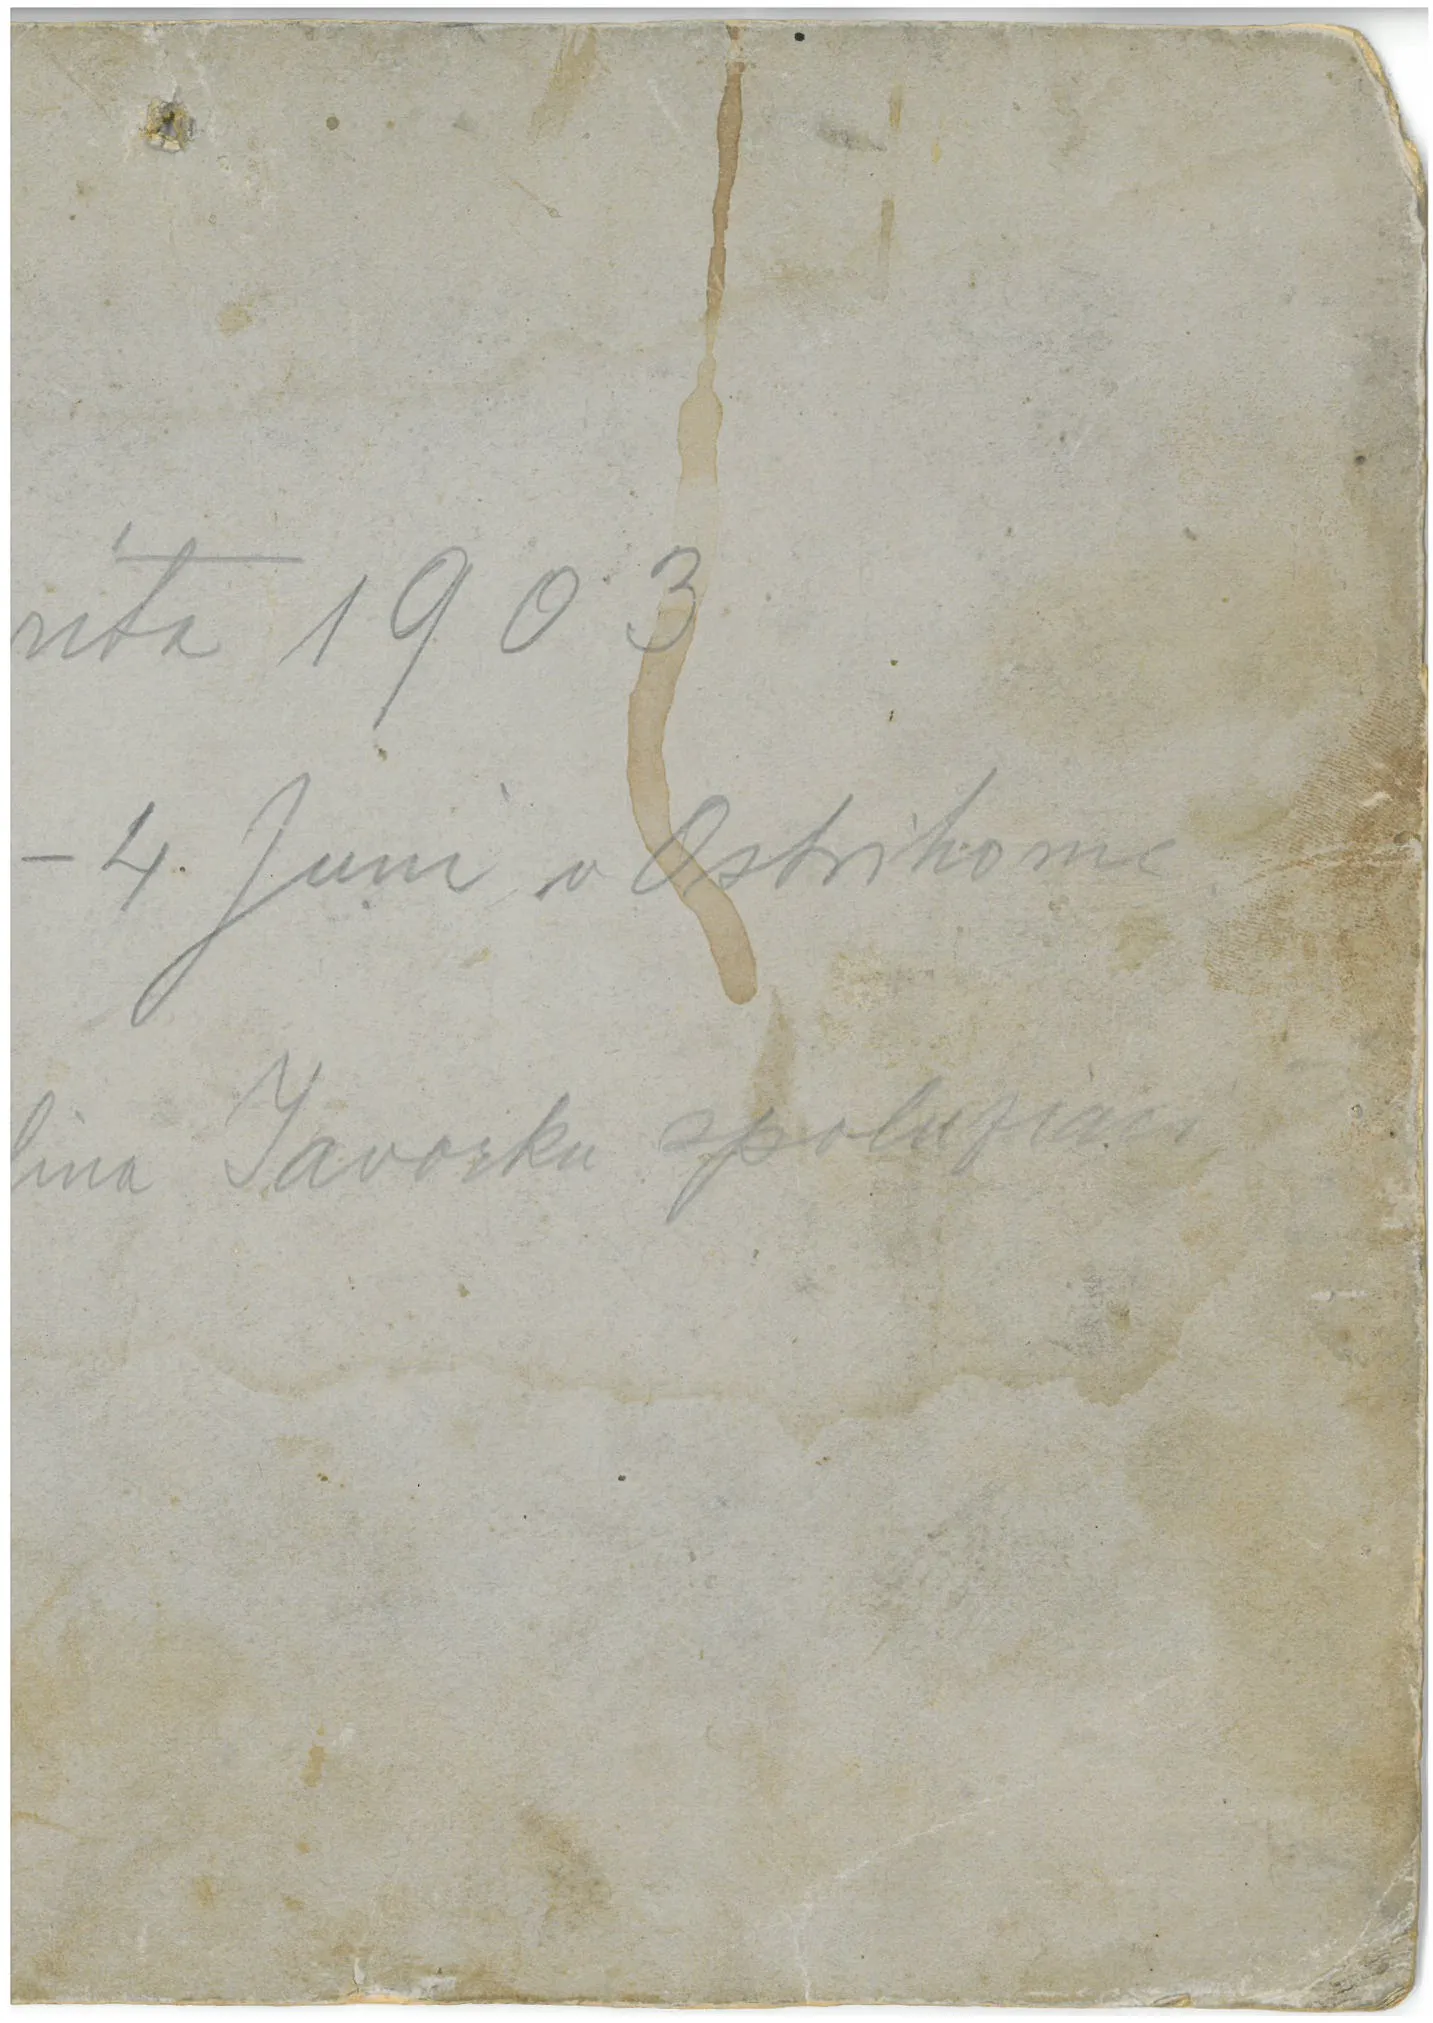 rita 1903
– 4. Juni v Ostrihome
lina Javorku spolužiaci